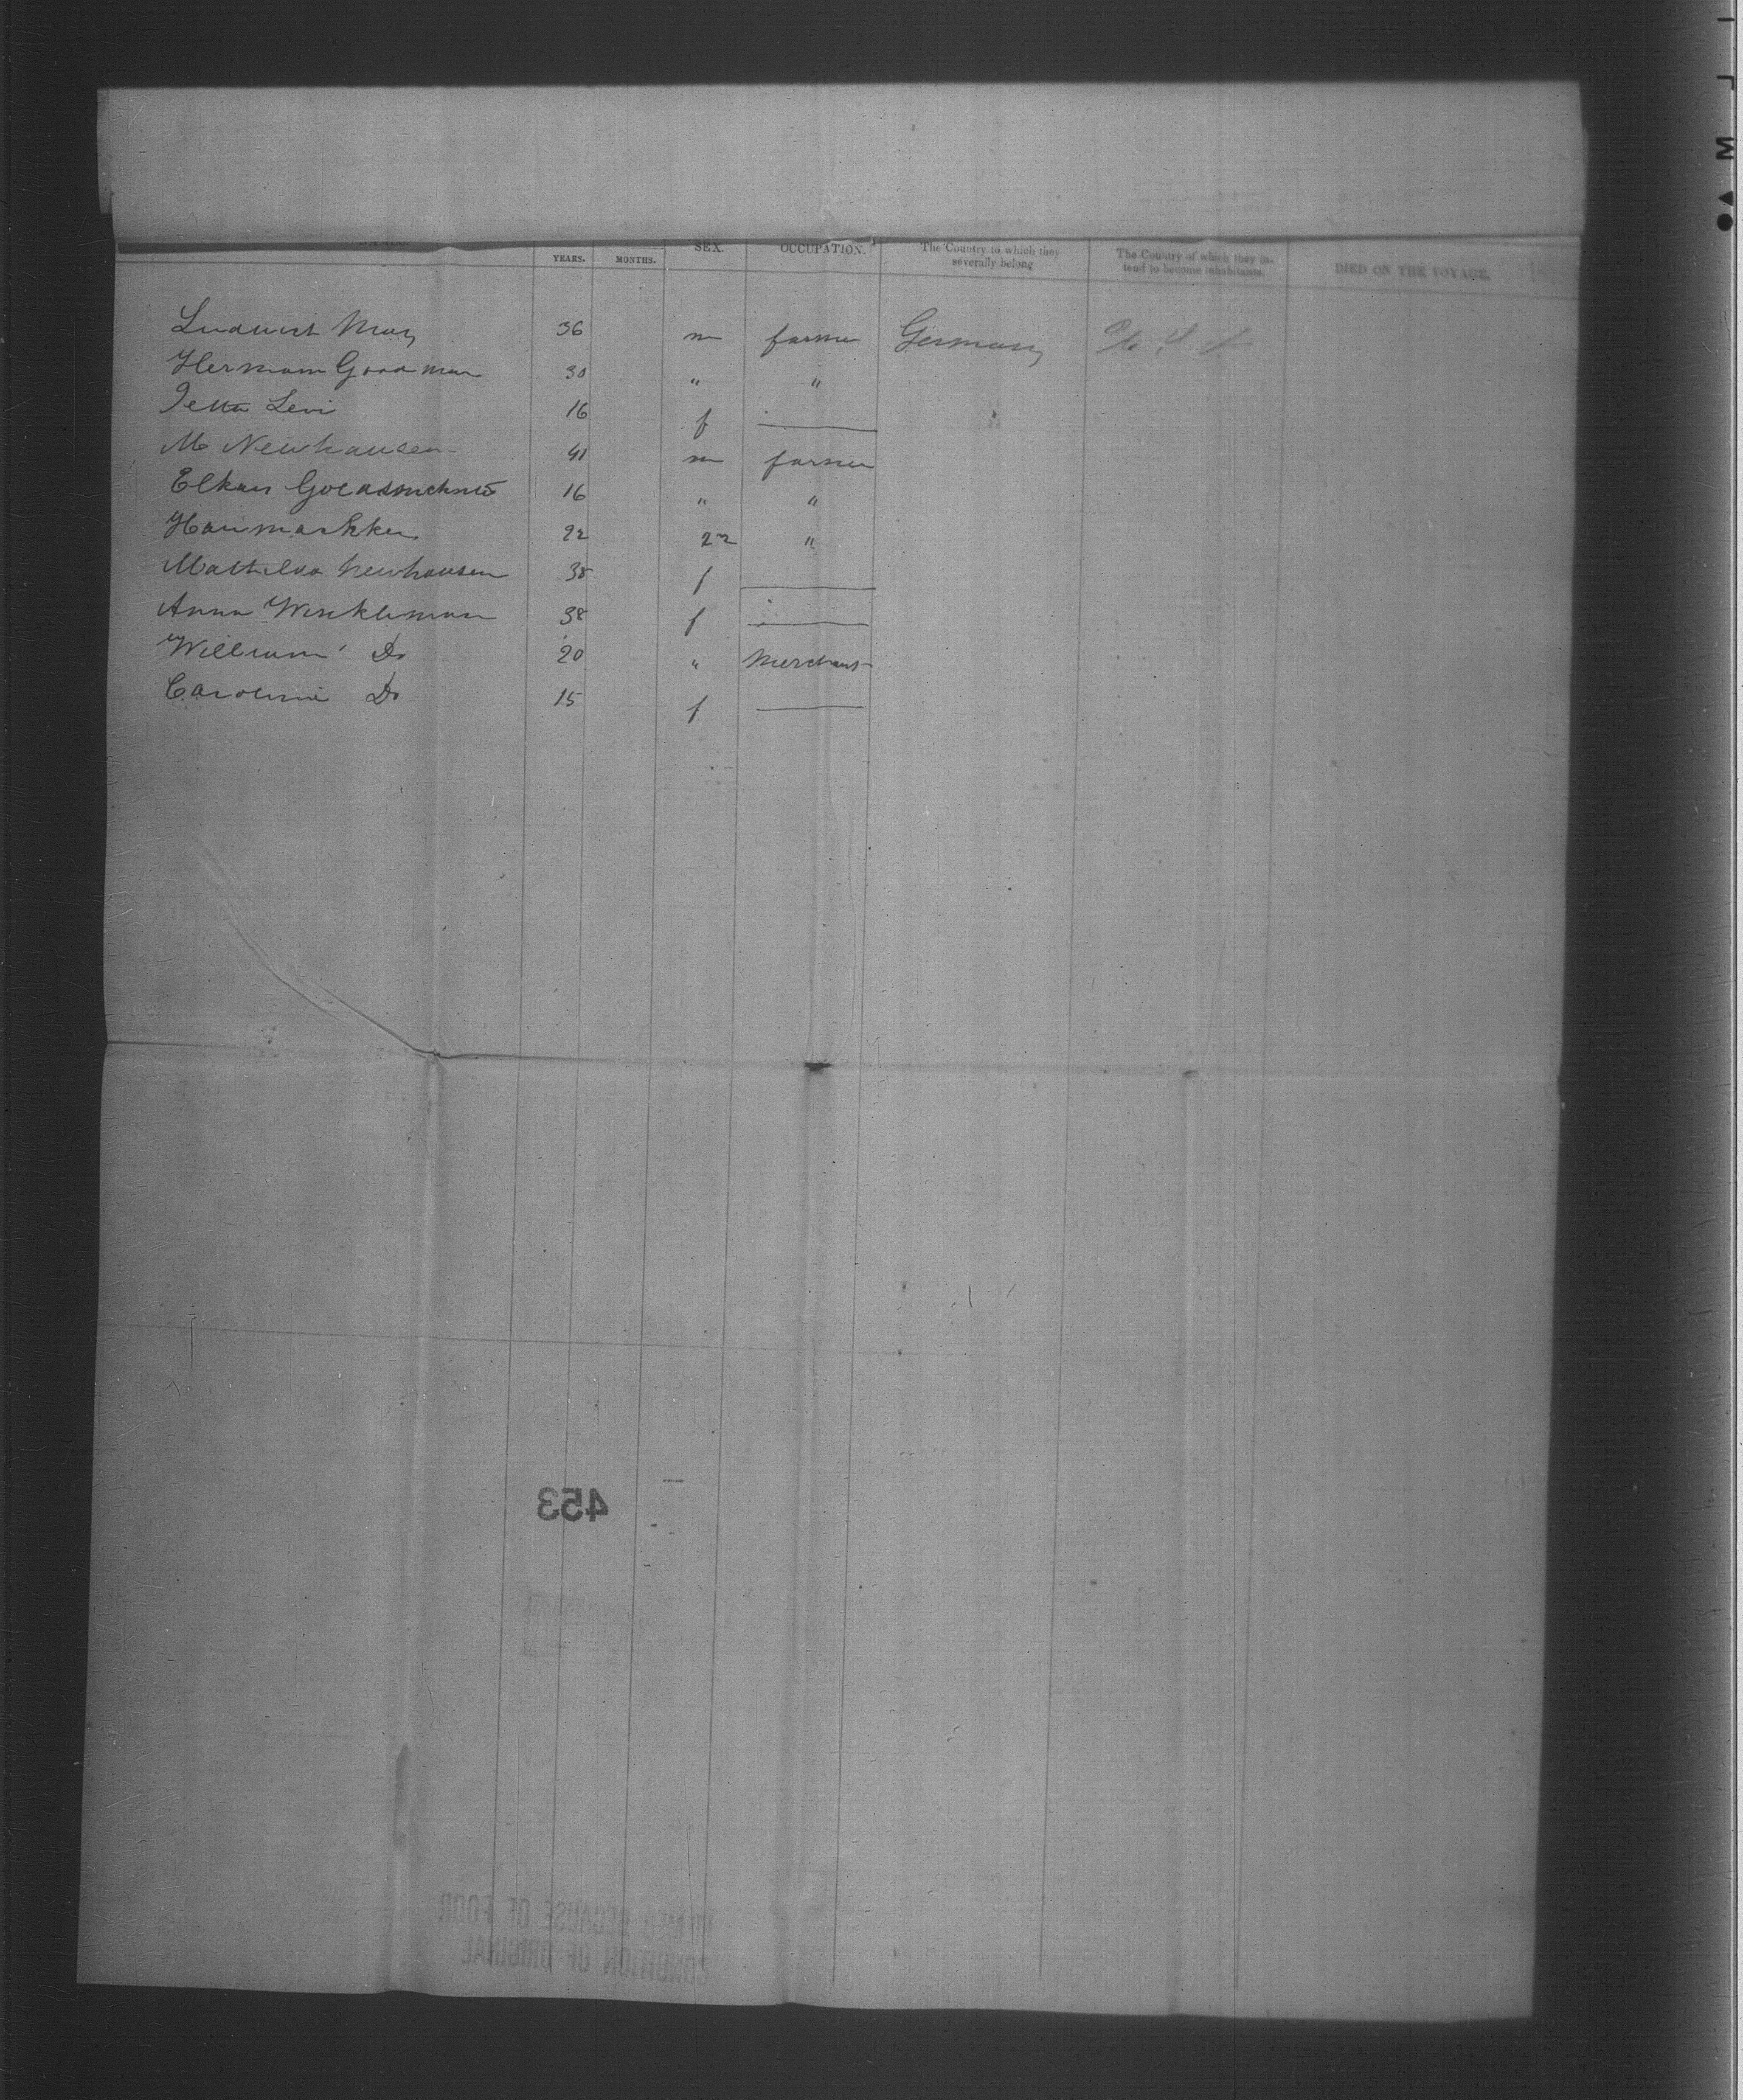 YEARS. MONTHS. SEX. OCCUPATION. The Country to which they severally belong The Country of which they in- tend to become inhabitants. DIED ON THE VOYAGE.
Ludwich May 36 m farmer Germany U S A
Hermann Goodman 30 " "
Jetta Levi 16 f
M Newhausen 41 m farmer
Elkan 16 " "
22 "
Mathilda Newhausen 38 f
Anna Winkleman 38 f
William Do 20 " Merchant
Caroline Do 15 f
453
BECAUSE OF POOR
CONDITION OF ORIGINAL